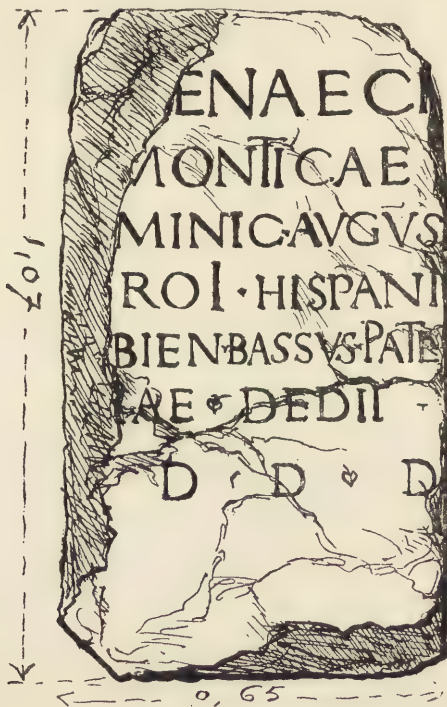 ENAECI
MONTICAE
MINIC·AVGVS
ROI·HISPANI
BIEN·BASSVS·PATE
IAE ❦ DEDIT
D · D ❦ D
1,07
0,65